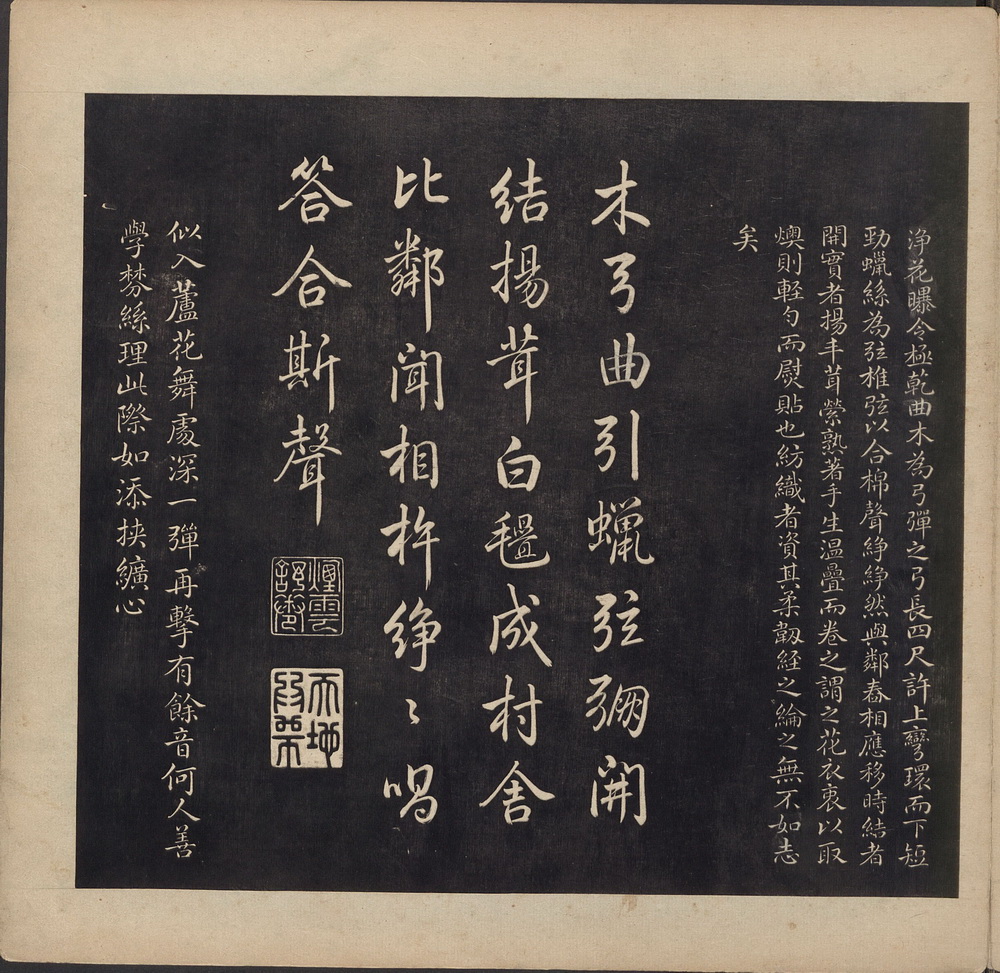 浄花曝令極乾曲木為弓彈之弓長四尺許上彎環而下短
勁蠟絲為弦椎弦以合棉聲錚錚然與鄰舂相應移時結者
開實者揚丰茸縈熟著手生温疊而卷之謂之花衣衷以取
燠則輕勻而熨貼也紡織者資其柔韌経之綸之無不如志
矣
木弓曲引蠟弦弸開
結揚茸白氎成村舍
比鄰聞相杵錚〻唱
答合斯聲
似入蘆花舞處深一彈再擊有餘音何人善
學棼絲理此際如添挾纊心